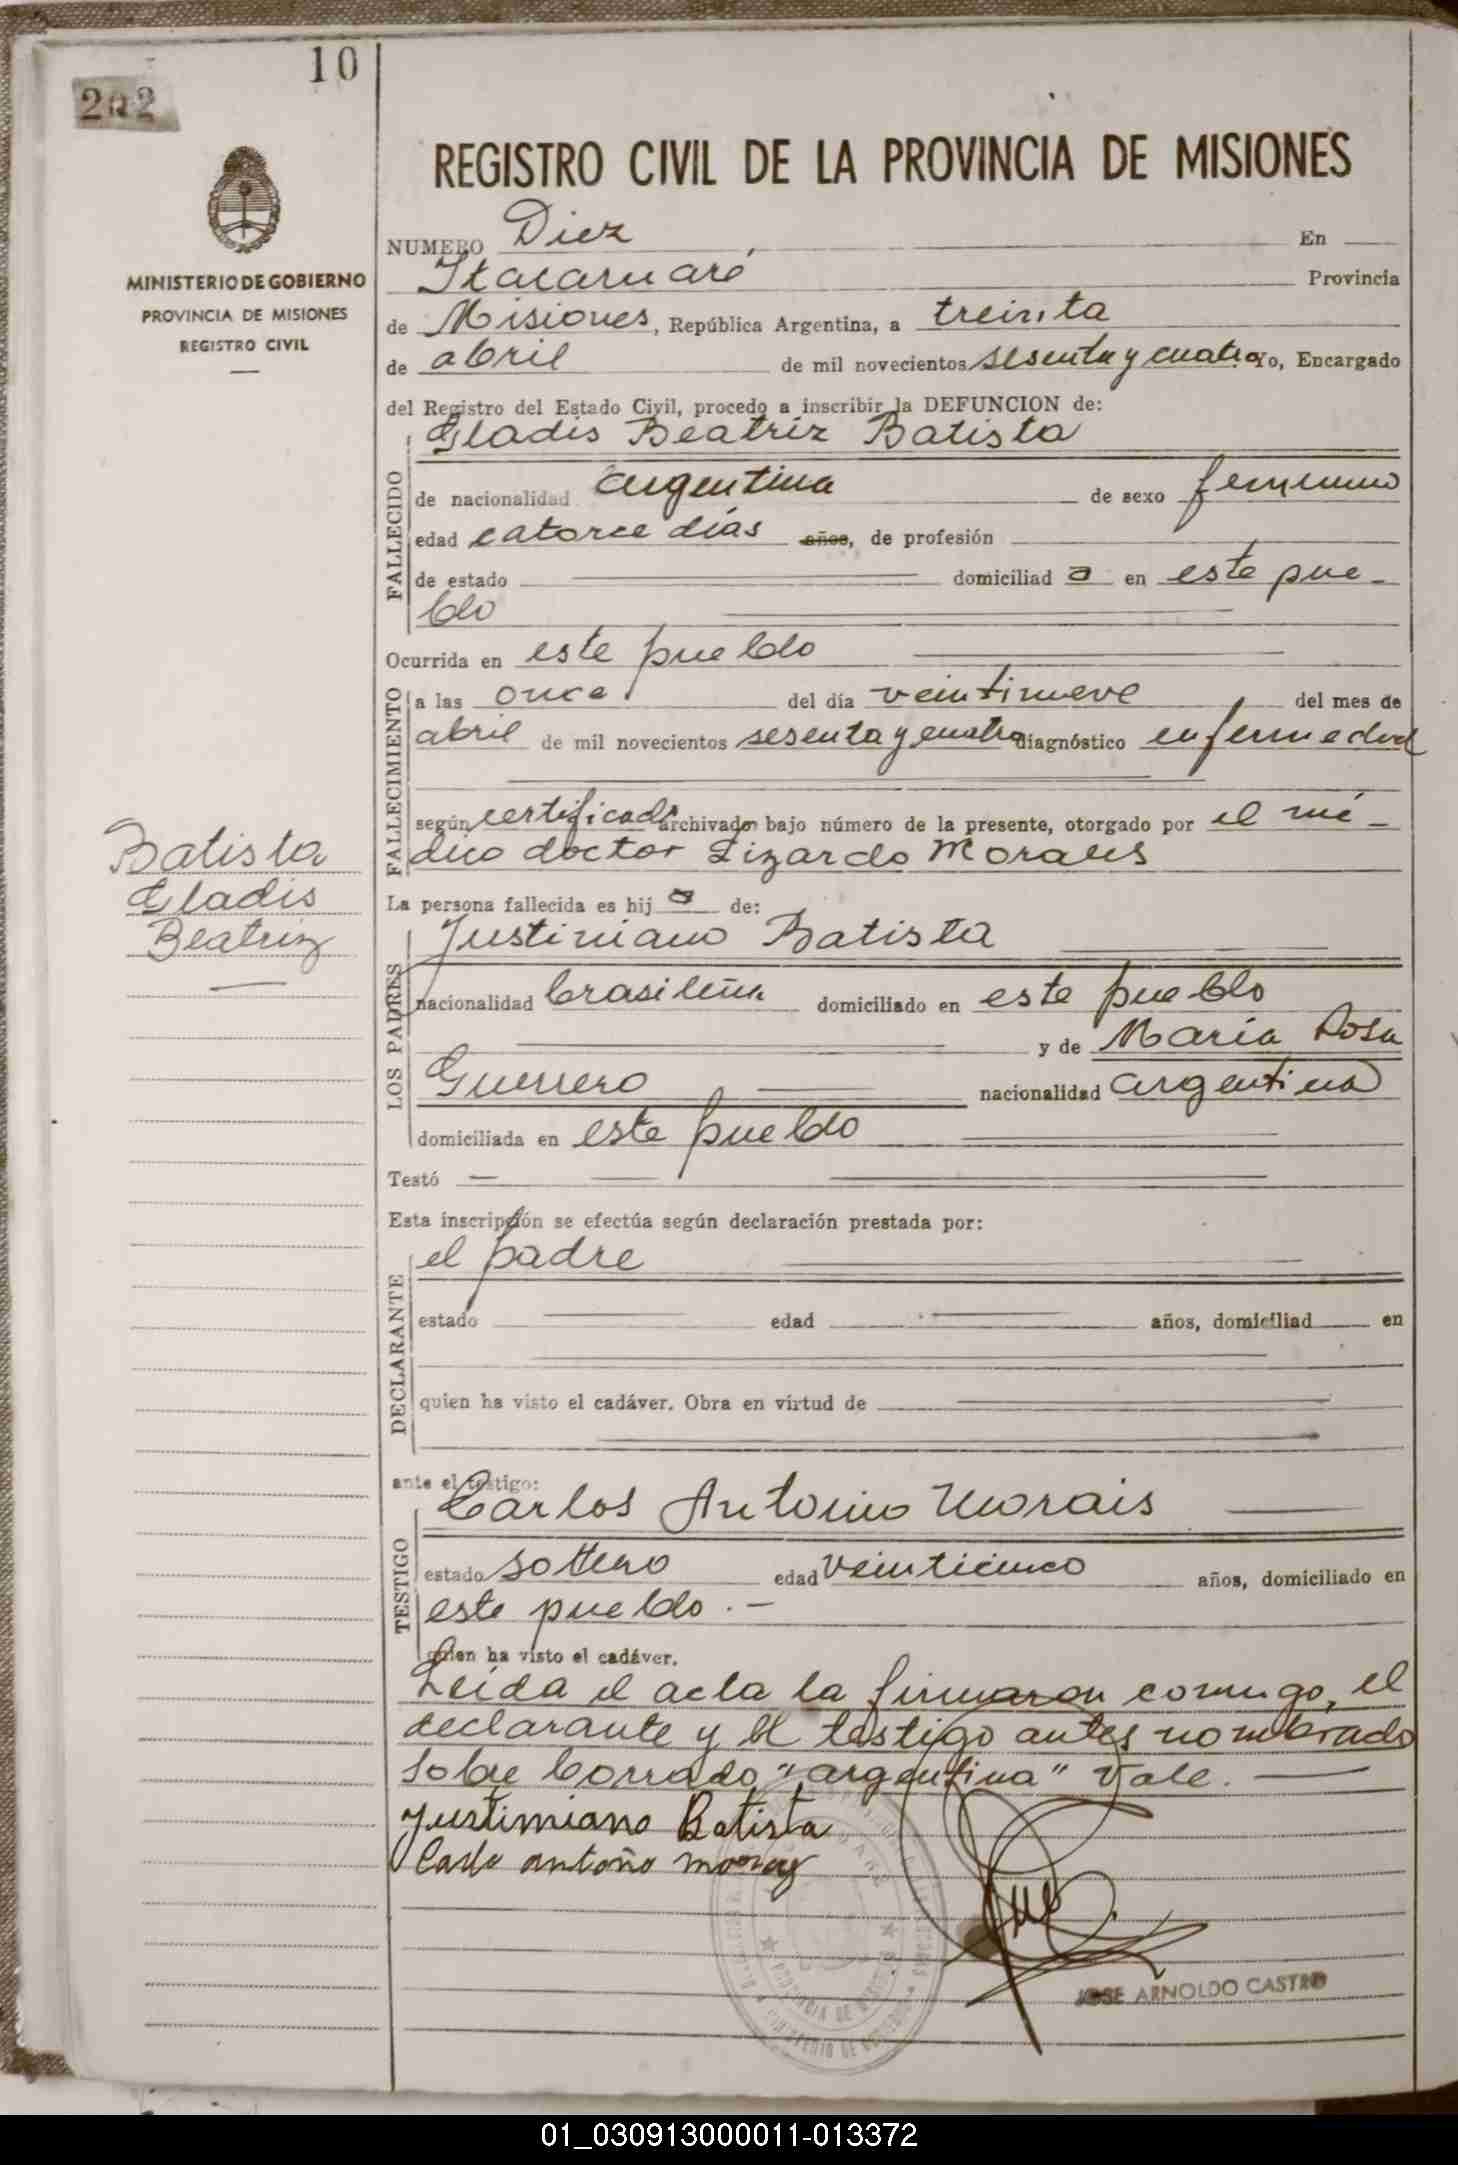 10
202
MINISTERIO DE GOBIERNO
PROVINCIA DE MISIONES
REGISTRO CIVIL
REGISTRO CIVIL DE LA PROVINCIA DE MISIONES
NUMERO Diez En
Itacaruaré, Provincia
de Misiones, República Argentina, a treinta
de abril de mil novecientos sesenta y cuatro Yo, Encargado
del Registro del Estado Civil, procedo a inscribir la DEFUNCION de:
FALLECIDO
Gladis Beatriz Batista
de nacionalidad argentina de sexo femenino
edad catorce días años, de profesión
de estado domiciliad a en este pue-
blo
Ocurrida en este pueblo
FALLECIMIENTO
a las once del día veintinueve del mes de
abril de mil novecientos sesenta y cuatro diagnóstico enfermedad
según certificado archivado bajo número de la presente, otorgado por el mé-
dico doctor Lizardo Morales
Batista
Gladis
Beatriz
La persona fallecida es hij a de:
LOS PADRES
Justiniano Batista
nacionalidad brasileña domiciliado en este pueblo
y de María Rosa
Guerrero nacionalidad argentina
domiciliada en este pueblo
Testó
Esta inscripción se efectúa según declaración prestada por:
DECLARANTE
el padre
estado edad años, domiciliad en
quien ha visto el cadáver. Obra en virtud de
ante el testigo:
TESTIGO
Carlos Antonio Morais
estado soltero edad veinticinco años, domiciliado en
este pueblo.-
quien ha visto el cadáver.
Leída el acta la firmaron conmigo, el
declarante y el testigo antes nombrado
sobre borrado "argentina" Vale.
Justimiano Batista
Carlo antoño
PROVINCIA DE MISIONES
JOSE ARNOLDO CASTRO
01_030913000011-013372